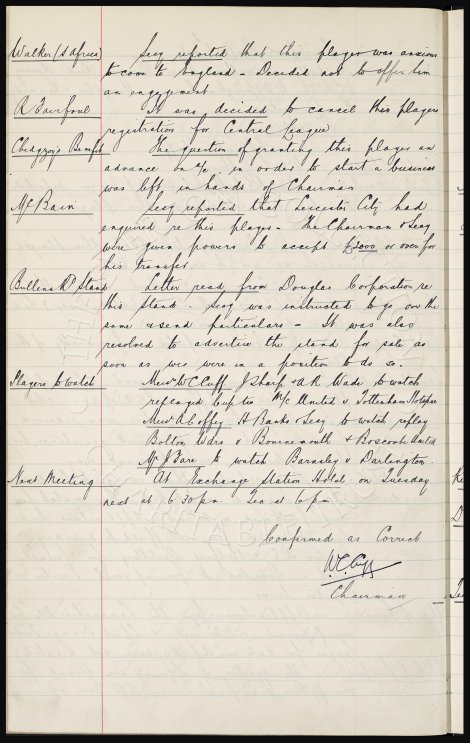 Walker (S Africa) Secy reported that this player was anxious
to come to England - Decided not to offer him
an engagement.
R Fairfoul It was decided to cancel this players
registration for Central League
Chedgzoy's Benefit The question of granting this player an
advance on a/c in order to start a business
was left in hands of Chairman
McBain Secy reported that Leicester City had
enquired re this player - The Chairman & Secy
were given powers to accept £3000 or over for
his transfer
Bullens Rd Stand Letter read from Douglas Corporation re
this stand - Secy was instructed to go over the
same & send particulars - It was also
resolved to advertise the stand for sale as
soon as we were in a position to do so.
Players to watch Messrs W C Cuff J Sharp & A R Wade to watch
replayed Cup tie M/c United v Tottenham Hotspur
Messrs A Coffey H Banks & Secy to watch replay
Bolton Wdrs v Bournemouth & Boscombe United
Mr J Fare to watch Barnsley v Darlington.
Next Meeting At Exchange Station Hotel on Tuesday
next at 6 30 pm Tea at 6 pm
Confirmed as Correct
W.C. Cuff
Chairman